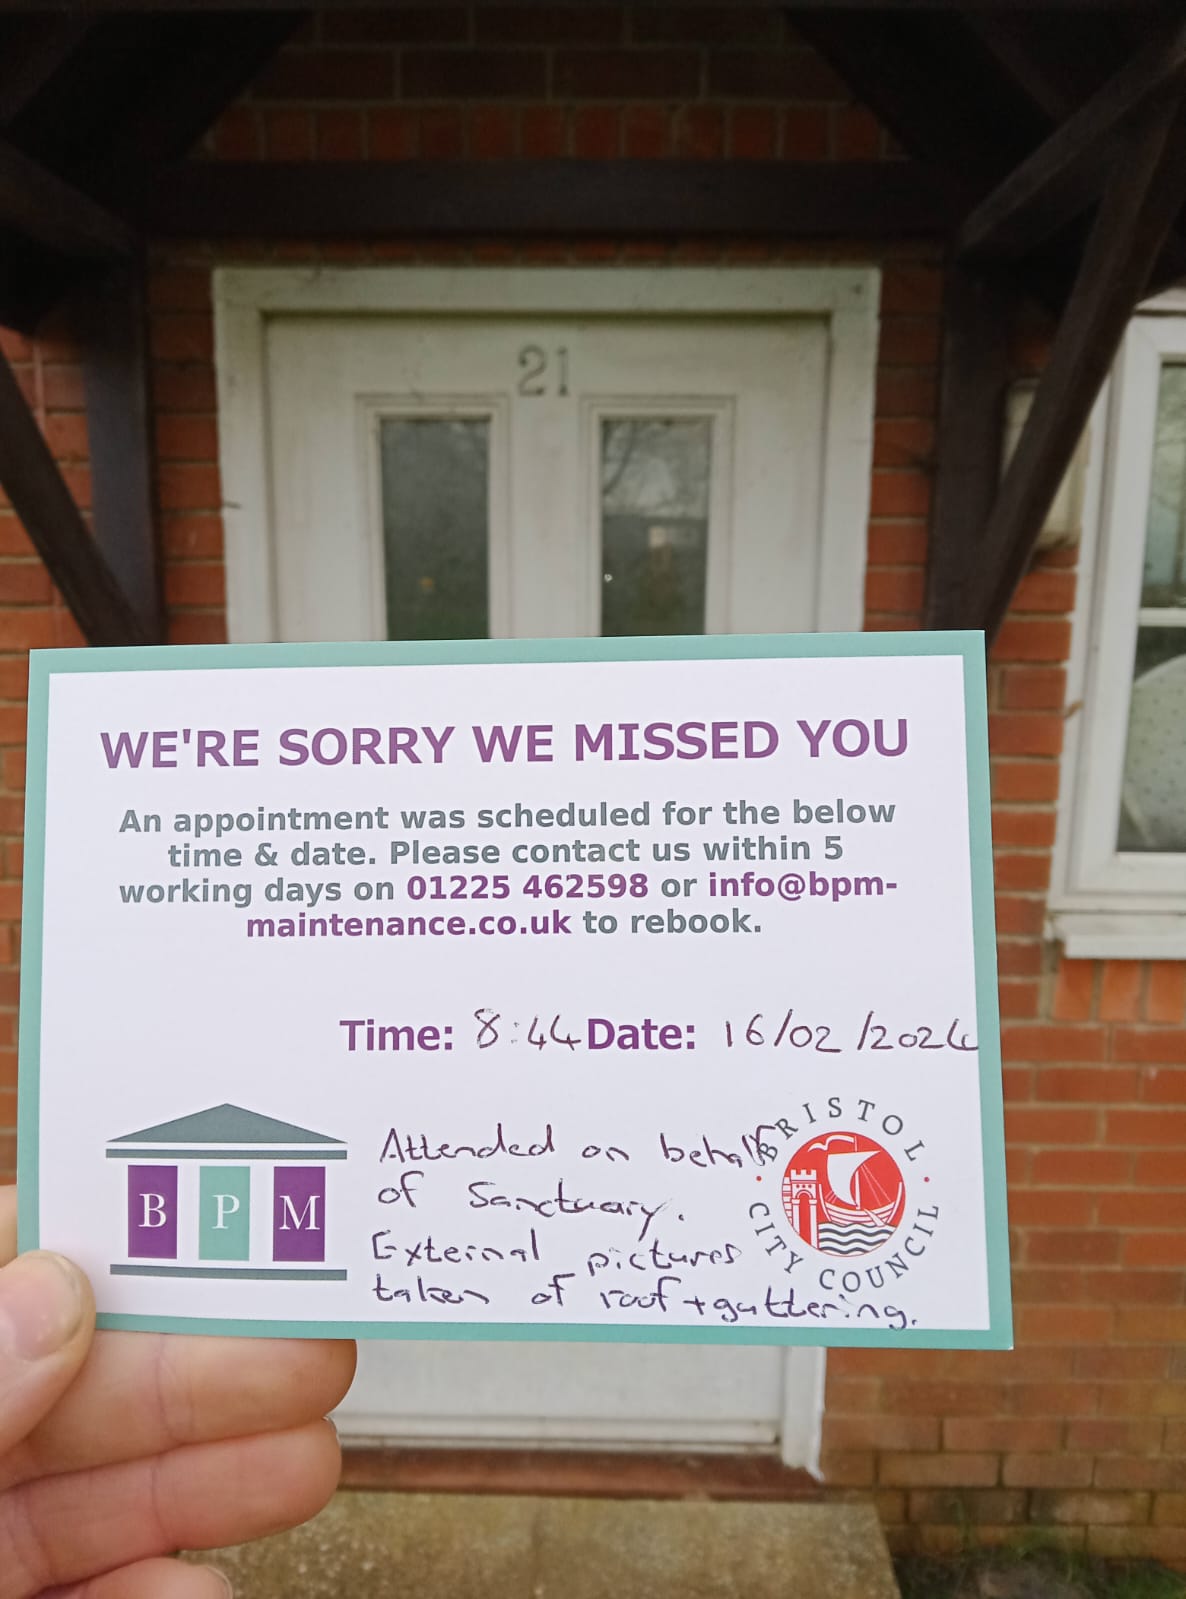 21
WE'RE SORRY WE MISSED YOU
An appointment was scheduled for the below
time & date. Please contact us within 5
working days on 01225 462598 or info@bpm-
maintenance.co.uk to rebook.
Time: 8:44 Date: 16/02/2024
Attended on behalf
of Sanctuary.
External pictures
taken of roof + guttering.
B P M
BRISTOL
CITY COUNCIL